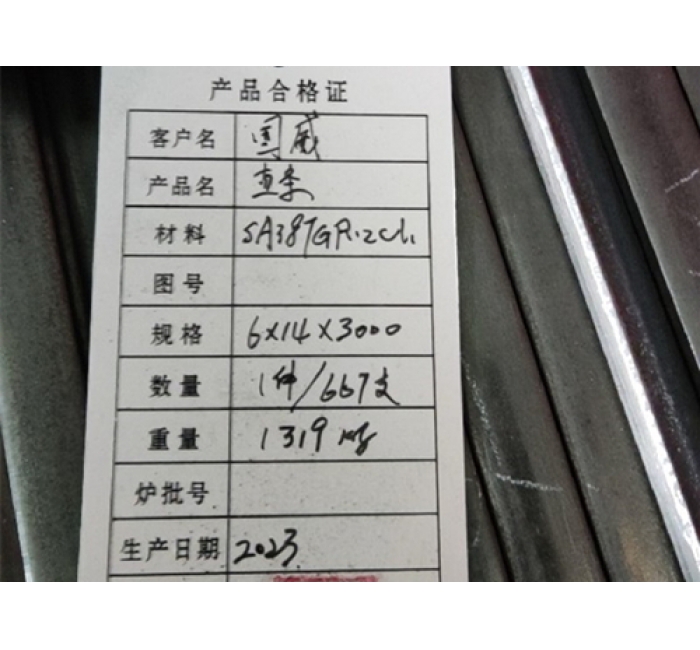 产品合格证
客户名 国威
产品名 直条
材料 SA387GR12CL1
图号
规格 6X14X3000
数量 1件/667支
重量 1319 kg
炉批号
生产日期 2023